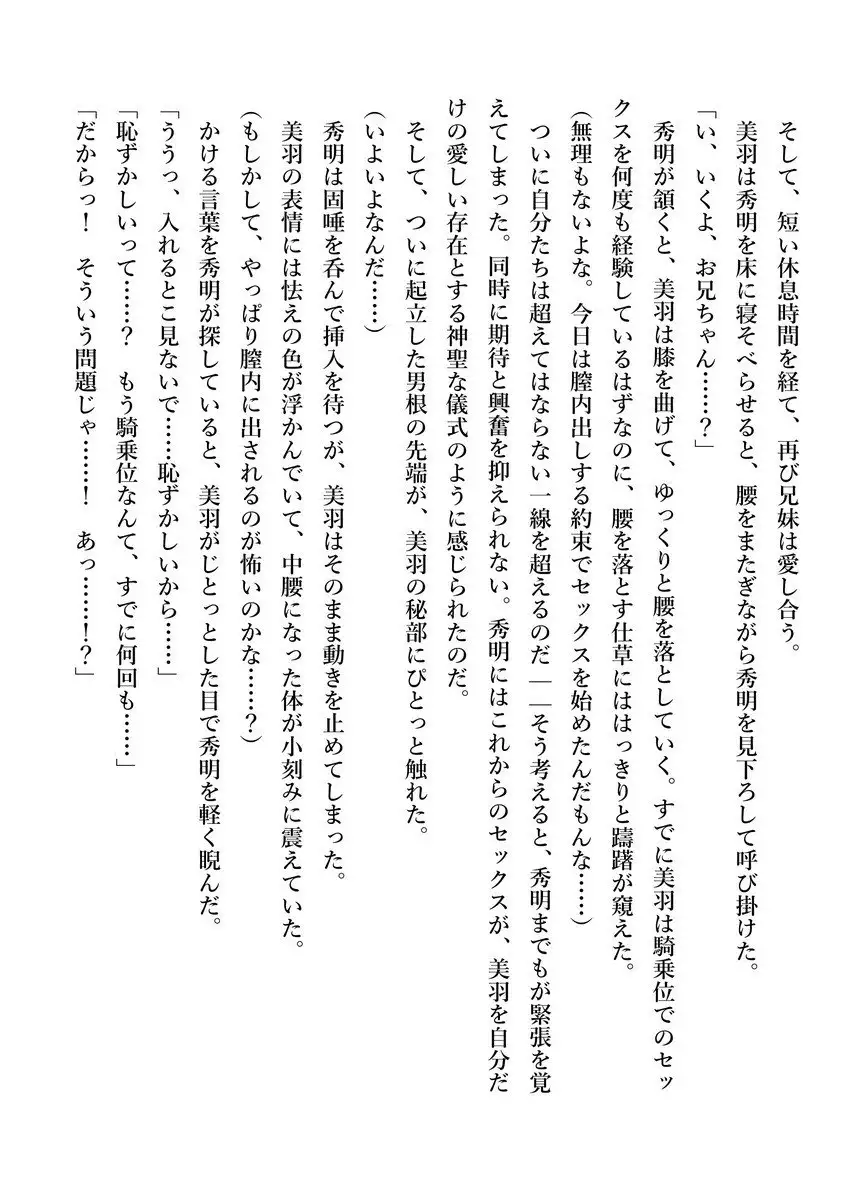 そして、短い休息時間を経て、再び兄妹は愛し合う。
美羽は秀明を床に寝そべらせると、腰をまたぎながら秀明を見下ろして呼び掛けた。
「い、いくよ、お兄ちゃん……？」
秀明が頷くと、美羽は膝を曲げて、ゆっくりと腰を落としていく。すでに美羽は騎乗位でのセッ
クスを何度も経験しているはずなのに、腰を落とす仕草にははっきりと躊躇が窺えた。
(無理もないよな。今日は膣内出しする約束でセックスを始めたんだもんな……)
ついに自分たちは超えてはならない一線を超えるのだ――そう考えると、秀明までもが緊張を覚
えてしまった。同時に期待と興奮を抑えられない。秀明にはこれからのセックスが、美羽を自分だ
けの愛しい存在とする神聖な儀式のように感じられたのだ。
そして、ついに起立した男根の先端が、美羽の秘部にぴとっと触れた。
(いよいよなんだ……)
秀明は固唾を呑んで挿入を待つが、美羽はそのまま動きを止めてしまった。
美羽の表情には怯えの色が浮かんでいて、中腰になった体が小刻みに震えていた。
(もしかして、やっぱり膣内に出されるのが怖いのかな……？)
かける言葉を秀明が探していると、美羽がじとっとした目で秀明を軽く睨んだ。
「ううっ、入れるとこ見ないで……恥ずかしいから……」
「恥ずかしいって……？　もう騎乗位なんて、すでに何回も……」
「だからっ！　そういう問題じゃ……！　あっ……！？」